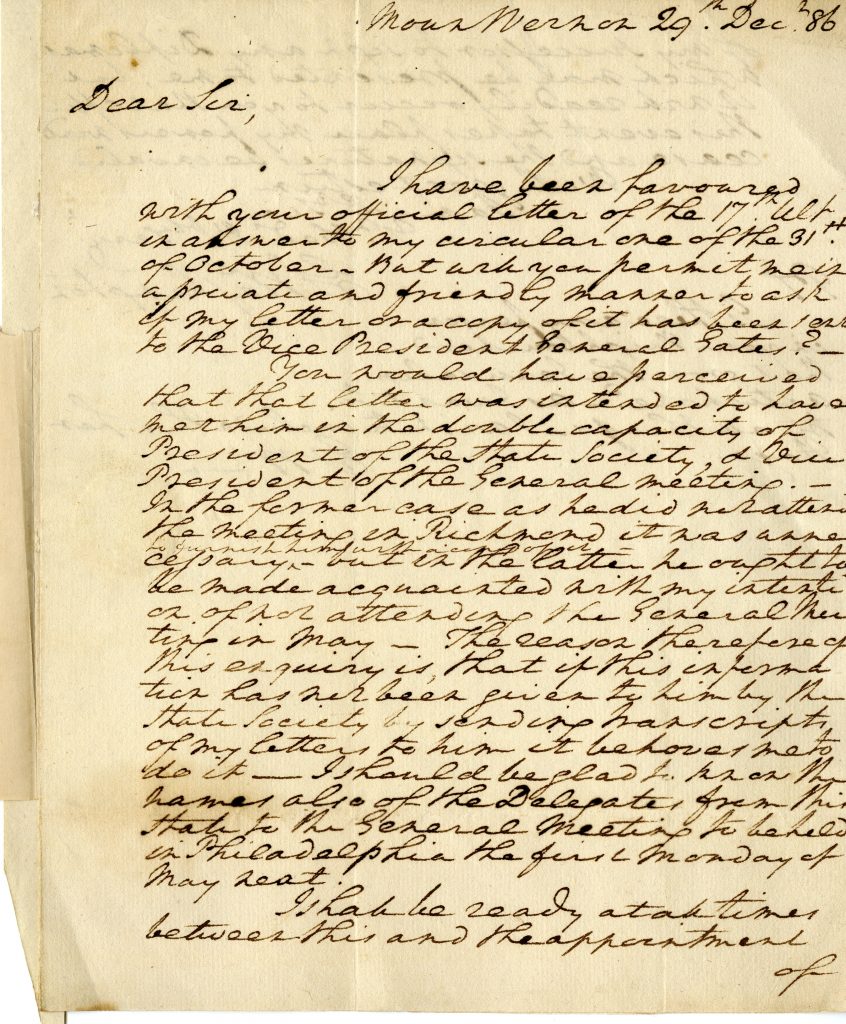 Moun Vernon 29th Decr 86
Dear Sir,
I have been favoured
with your official letter of the 17th Ult.
in answer to my circular one of the 31st
of October – But will you permit me in
a private and friendly manner to ask
if my letter or a copy of it has been sent
to the Vice President General Gates? –
You would have perceived
that that letter was intended to have
met him in the double capacity of
President of the State Society, & Vice
President of the General meeting. –
In the former case as he did not attend
the meeting in Richmond it was unne
to furnish him with a copy of it
cessary, – but in the latter he ought to
be made acquainted with my intenti
on of not attending the General Mee
ting in May – The reason therefore of
this enquiry is, that if this informa
tion has not been given to him by the
State Society by sending transcripts
of my letters to him it behoves me to
do it — I should be glad to know the
names also of the Delegates from this
State to the General Meeting to be held
in Philadelphia the first Monday of
May next.
I shall be ready at all times
between this and the appointment
of